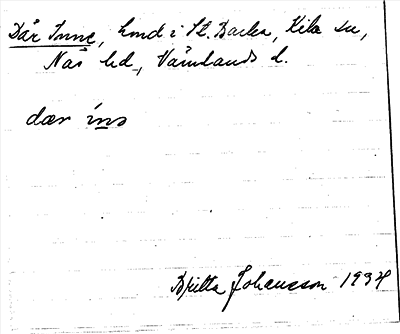 Där Inne, hmd i St. Backa, Kila sn,
Näs hd, Värmlands l.
dær ins
Britta Johansson 1934